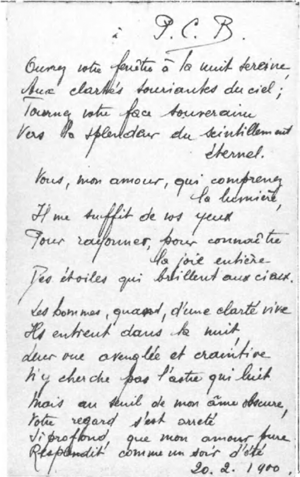 à P. C. B.
Ouvrez votre fenêtre à la nuit sereine,
Aux clartés souriantes du ciel ;
Tournez votre face souveraine
Vers la splendeur du scintillement
éternel.
Vous, mon amour, qui comprenez
la lumière,
Il me suffit de vos yeux
Pour rayonner, pour connaître
la joie entière
Des étoiles qui brillent aux cieux.
Les hommes, quand, d'une clarté vive
Ils entrent dans la nuit
Leur vue aveuglée et craintive
N'y cherche pas l'astre qui luit
Mais au seuil de mon âme obscure,
Votre regard s'est arrêté
Si profond, que mon amour pure
Resplendit comme un soir d'été
20. 2. 1900.